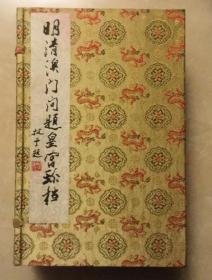 明清澳门问题皇宫珍档